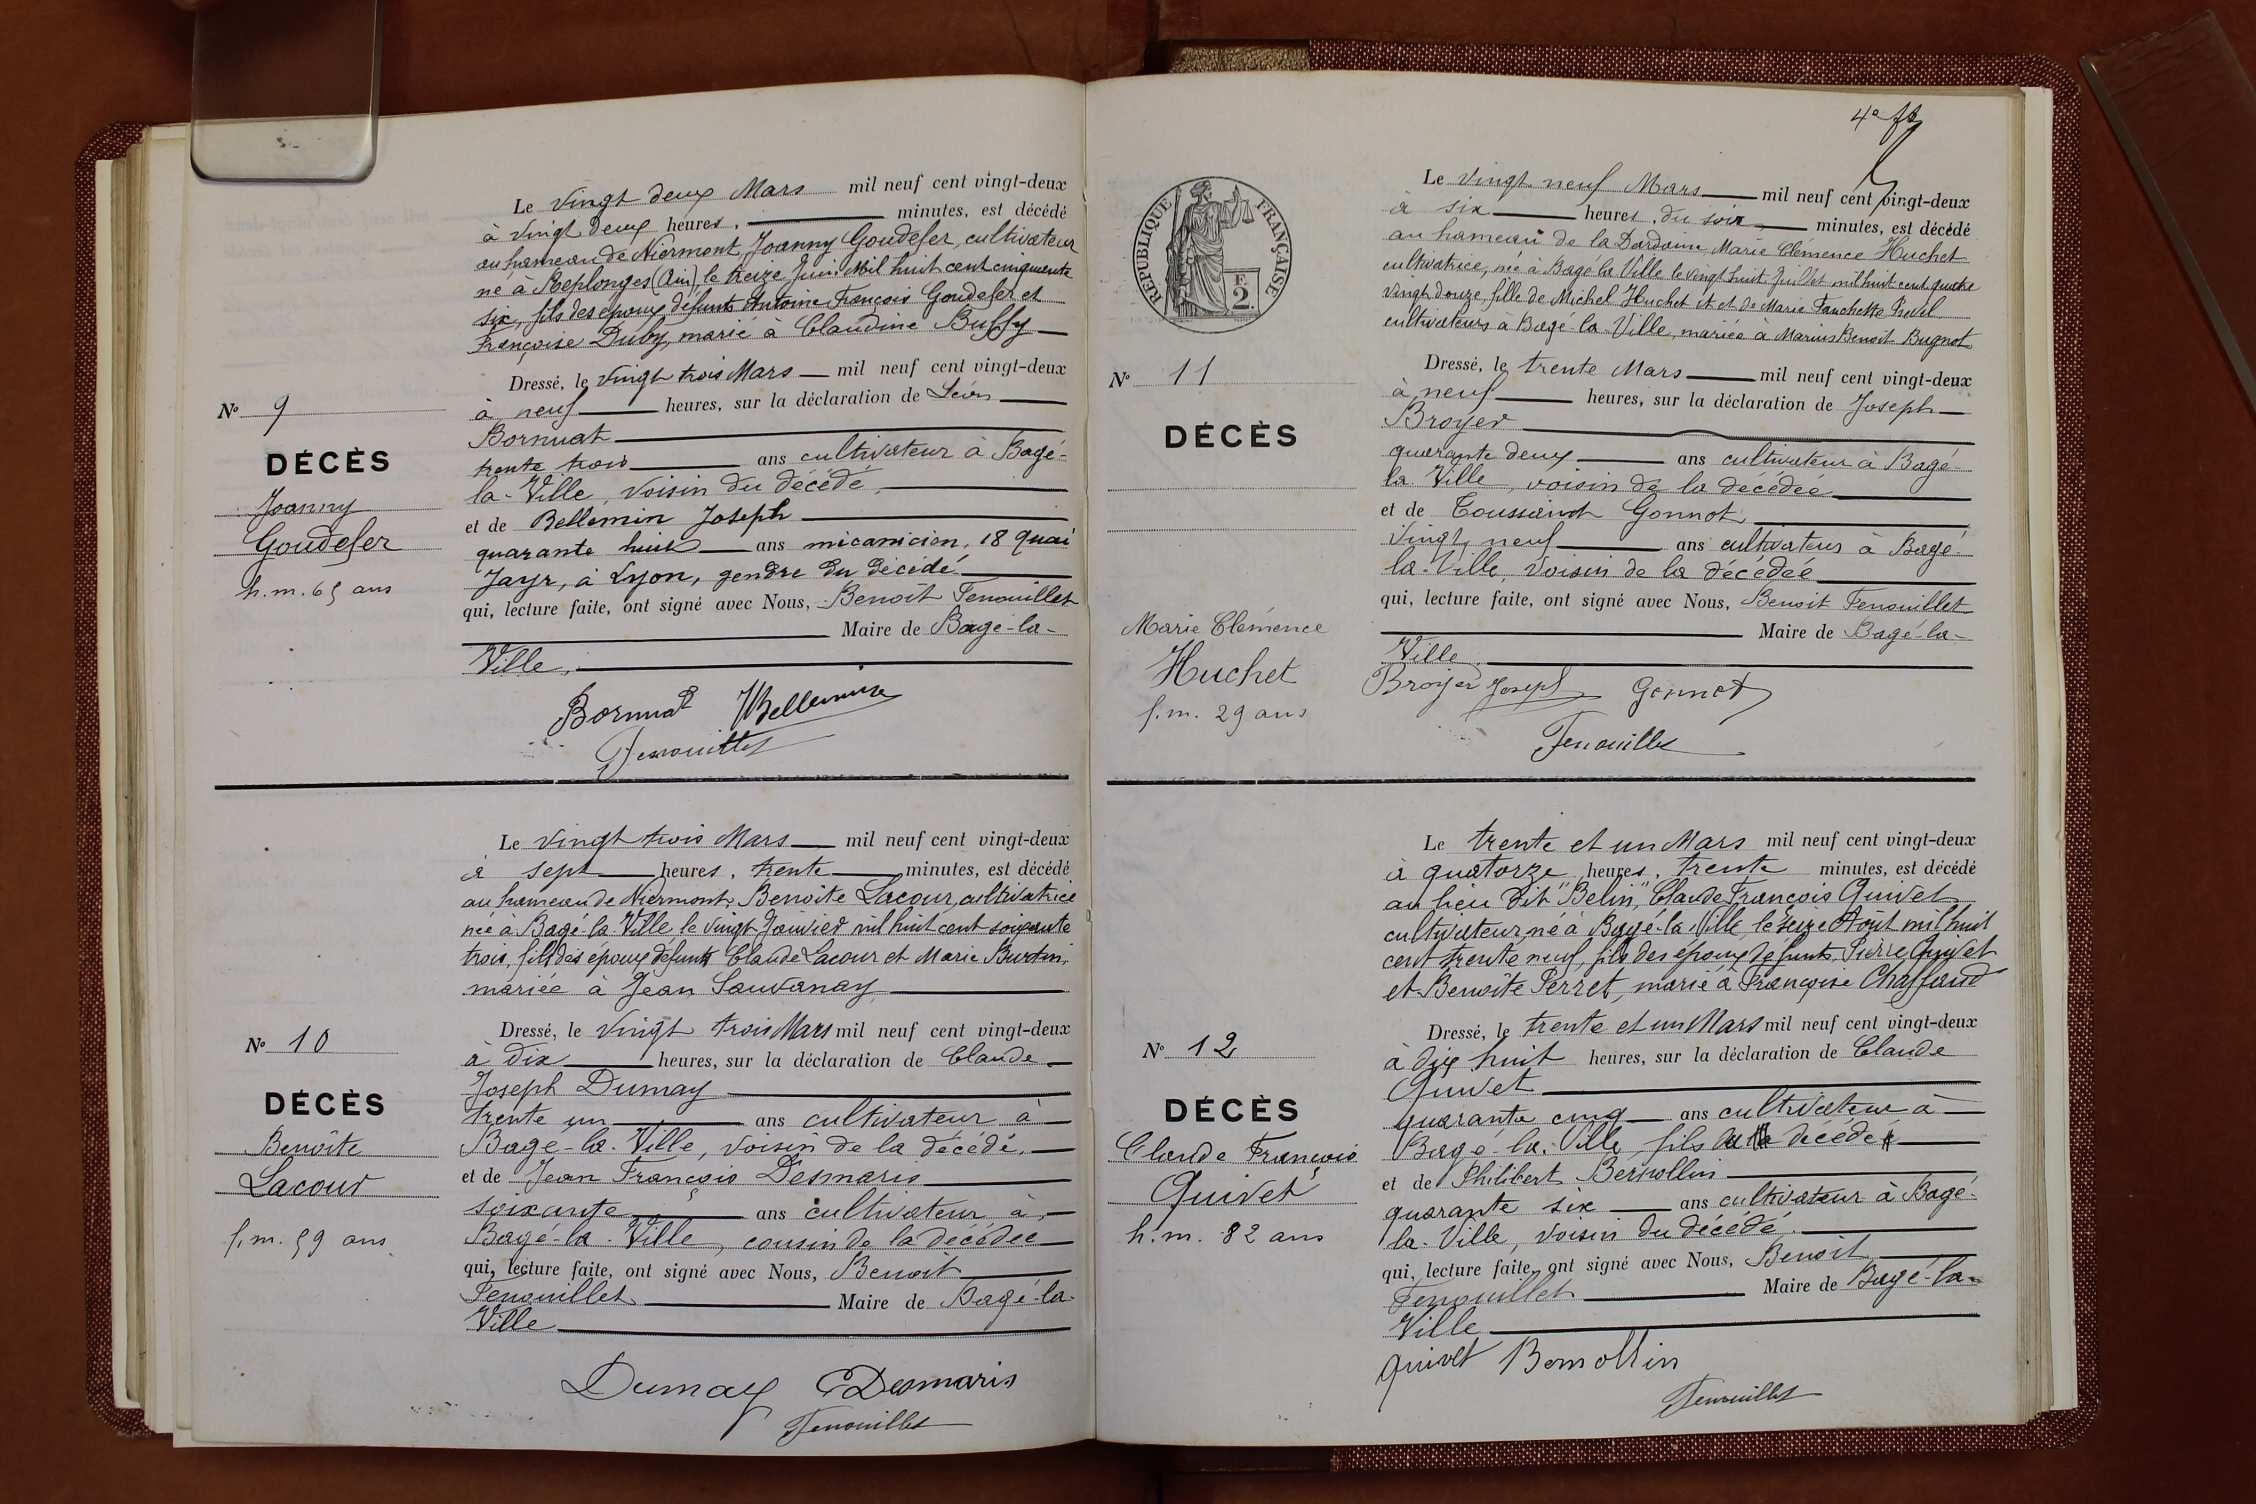 Le vingt deux Mars mil neuf cent vingt-deux
à vingt deux heures, minutes, est décédé
au hameau de Niermont, Joanny Goudefer, cultivateur
né à Replonges (Ain), le treize Juin Mil huit cent cinquante
six, fils des époux défunts Antoine François Goudefer et
Françoise Duby, marié à Claudine Buffy
Dressé, le vingt trois Mars mil neuf cent vingt-deux
à neuf heures, sur la déclaration de Léon
Bornuat
trente trois ans cultivateur à Bagé-
la-Ville, voisin du décédé,
et de Bellemin Joseph
quarante huit ans mécanicien, 18 quai
Jayr, à Lyon, gendre du décédé
qui, lecture faite, ont signé avec Nous, Benoît Fenouillet
Maire de Bagé-la-
Ville.
Bornuat Bellemin
Fenouillet
N° 9
DÉCÈS
Joanny
Goudefer
h.m. 65 ans
Le vingt trois Mars mil neuf cent vingt-deux
à sept heures, trente minutes, est décédé
au hameau de Niermont, Benoîte Lacour, cultivatrice
née à Bagé-la-Ville le vingt Janvier mil huit cent soixante
trois, fille des époux défunts Claude Lacour et Marie Burtin,
mariée à Jean Sauvanay
Dressé, le vingt trois Mars mil neuf cent vingt-deux
à dix heures, sur la déclaration de Claude
Joseph Dumay
trente un ans cultivateur à
Bagé-la-Ville, voisin de la décédé,
et de Jean François Desmaris
soixante ans cultivateur à
Bagé-la-Ville, cousin de la décédée
qui, lecture faite, ont signé avec Nous, Benoît
Fenouillet Maire de Bagé-la-
Ville
Dumay Desmaris
Fenouillet
N° 10
DÉCÈS
Benoîte
Lacour
f.m. 59 ans
4e
RÉPUBLIQUE FRANÇAISE
E
2
Le vingt neuf Mars mil neuf cent vingt-deux
à six heures, du soir minutes, est décédé
au hameau de la Dardaine, Marie Clémence Huchet
cultivatrice, née à Bagé la Ville le vingt huit Juillet mil huit cent quatre
vingt douze, fille de Michel Huchet et de Marie Fanchette Prevel
cultivateurs à Bagé-la-Ville, mariée à Marius Benoît Bugnot
Dressé, le trente Mars mil neuf cent vingt-deux
à neuf heures, sur la déclaration de Joseph
Broyer
quarante deux ans cultivateur à Bagé-
la Ville, voisin de la décédée
et de Toussaint Gonnot
vingt neuf ans cultivateur à Bagé-
la-Ville, voisin de la décédée
qui, lecture faite, ont signé avec Nous, Benoît Fenouillet
Maire de Bagé-la-
Ville
Broyer Joseph Gonnot
Fenouillet
N° 11
DÉCÈS
Marie Clémence
Huchet
f.m. 29 ans
Le trente et un Mars mil neuf cent vingt-deux
à quatorze heures, trente minutes, est décédé
au lieu dit "Belin", Claude François Quivet
cultivateur, né à Bagé-la Ville, le seize Août mil huit
cent trente neuf, fils des époux défunts, Pierre Quivet
et Benoîte Perret, marié à Françoise Chaffaud
Dressé, le trente et un Mars mil neuf cent vingt-deux
à dix huit heures, sur la déclaration de Claude
Quivet
quarante cinq ans cultivateur à
Bagé-la-Ville, fils du décédé
et de Philibert Bernollin
quarante six ans cultivateur à Bagé-
la-Ville, voisin du décédé.
qui, lecture faite, ont signé avec Nous, Benoît
Fenouillet Maire de Bagé-la-
Ville
quivet Bernollin
Fenouillet
N° 12
DÉCÈS
Claude François
Quivet
h.m. 82 ans